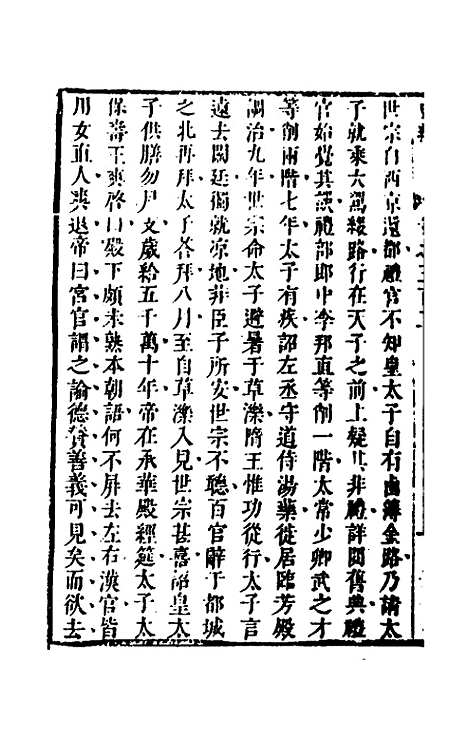 世宗自西京還都禮官不知皇太子自有鹵簿金路乃請太
子就乘大駕緩路行在天子之前上疑其非禮詳閱舊典禮
官始覺其誤禮部郎中李邦直等削一階太常少卿武之才
等削兩階七年太子有疾詔左丞守道侍湯藥徙居臨芳殿
調治九年世宗命太子避暑于草濼隋王惟功從行太子言
遠去闕廷獨就凉地非臣子所安世宗不聽百官辭于都城
之北再拜太子答拜八月至自草濼入見世宗甚喜詔皇太
子供膳勿月支歲給五千萬十年帝在承華殿經筵太子太
保壽王爽啓曰殿下頗未熟本朝語何不屏去左右漢官皆
用女直人爽退帝曰宮官謂之諭德贊善義可見矣而欲去